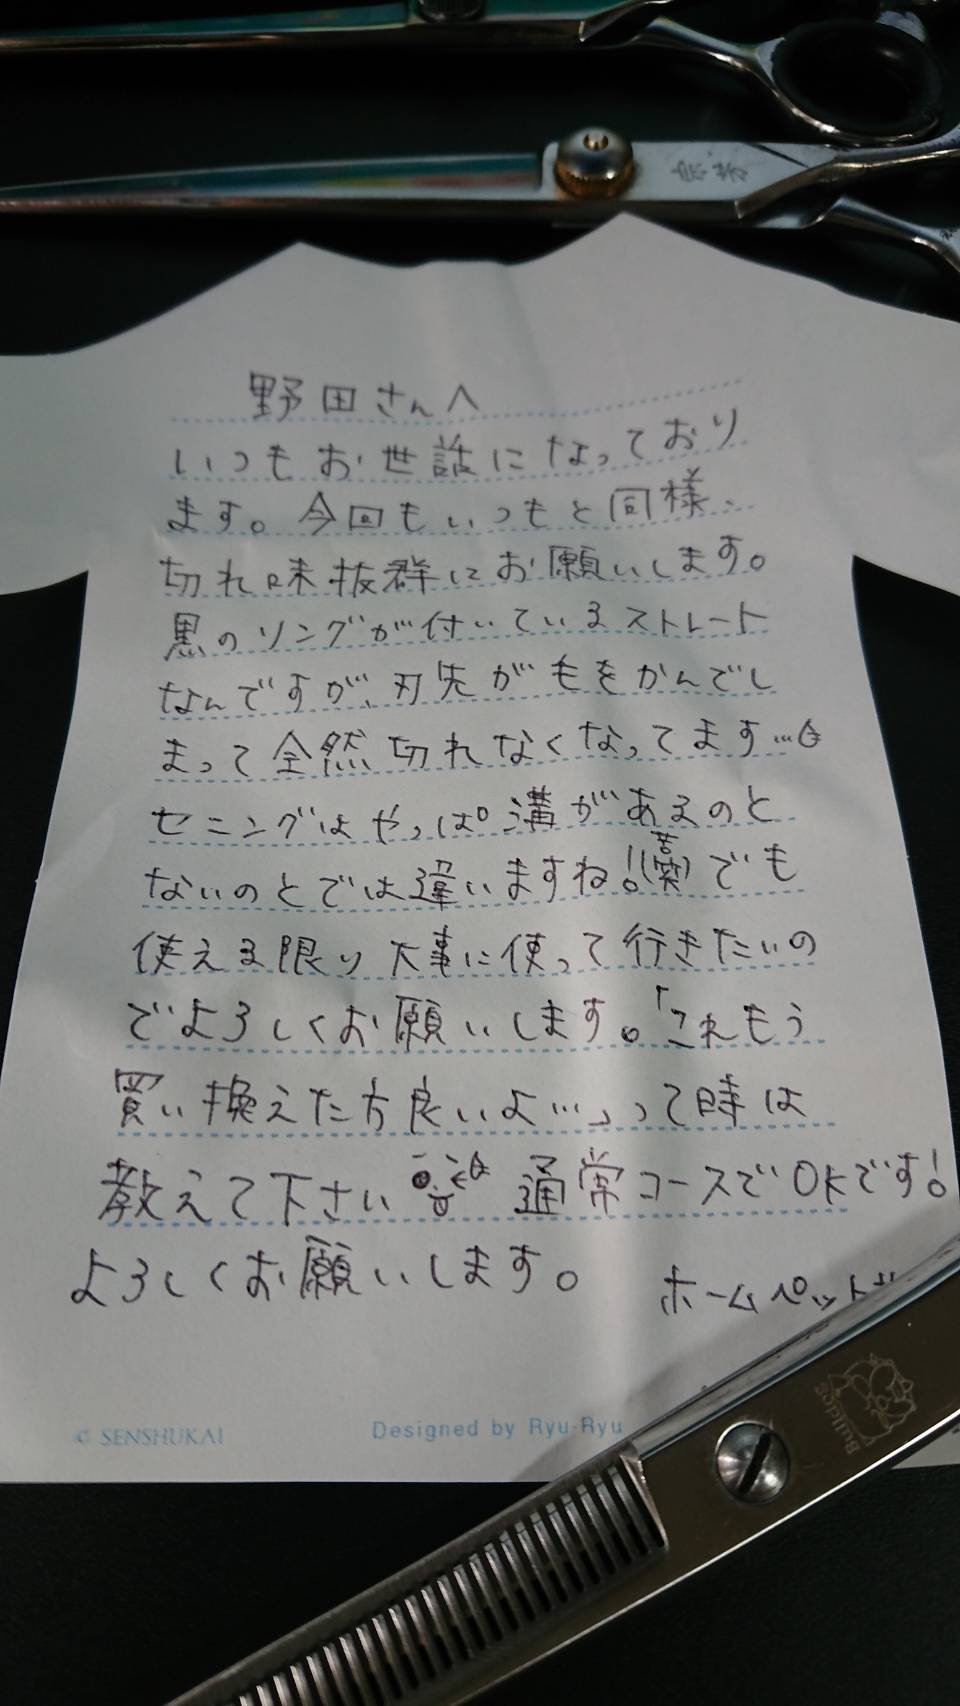 宗芳
野田さんへ
いつもお世話になっており
ます。今回もいつもと同様、
切れ味抜群にお願いします。
黒のリングが付いているストレート
なんですが、刃先が毛をかんでし
まって全然切れなくなってます…
セニングはやっぱ溝があるのと
ないのとでは違いますね!(笑)でも
使える限り大事に使って行きたいの
でよろしくお願いします。「これもう
買い換えた方良いよ…」って時は
教えて下さい 通常コースでOKです!
よろしくお願いします。 ホームペット
© SENSHUKAI Designed by Ryu-Ryu